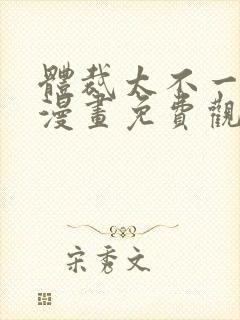 體裁太不一
漫畫免費觀
宋秀文